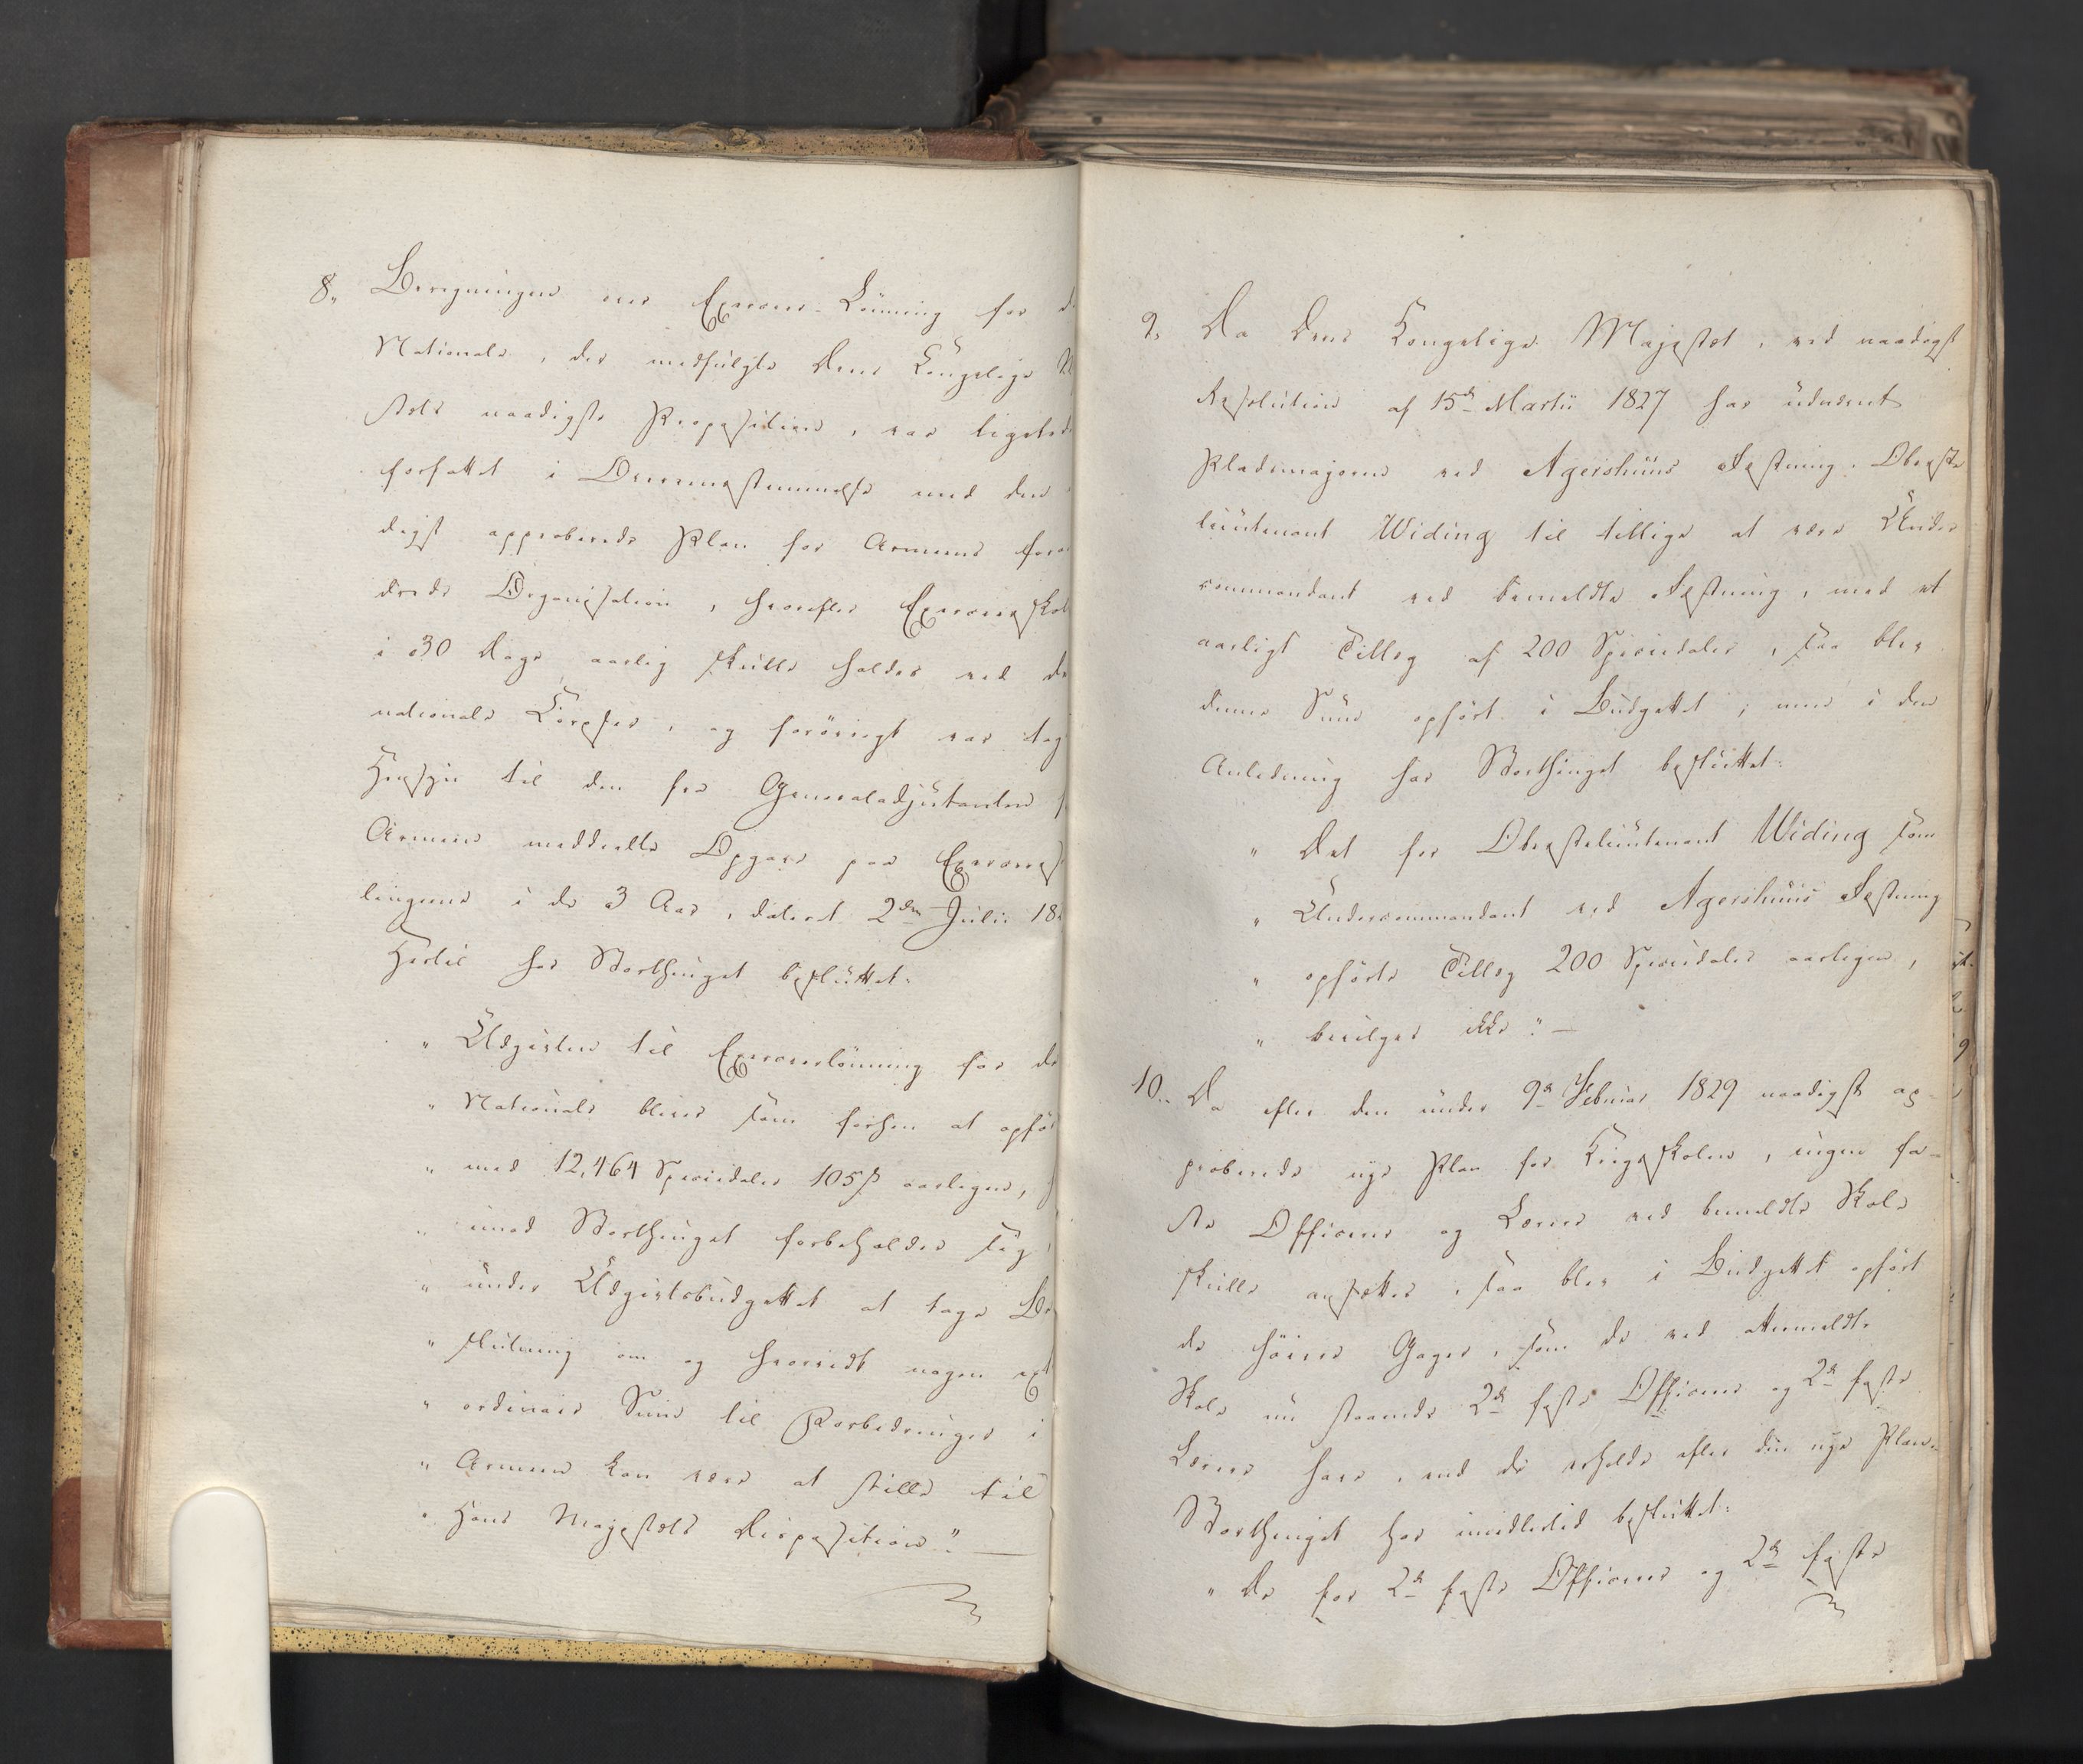 8, Beregningen over Exerceer-Lönning for d
Nationale, der medfulgte Deres Kongelige M
stets naadigste Proposition, var ligeled
forfattet i Overeensstemmelse med den
digst approberede Plan for Armeens foran
drede Organisation, hvorefter Exerceerskol
i 30 Dage aarlig skulle holdes ved de
nationale Corpser, og forövrigt var tag
Hensyn til den fra Generaladjutanten f
Armeen meddeelte Opgave paa Exerceers
lingerne i de 3 Aar, dateret 2den Julii 18
Hertil har Storthinget besluttet:
" Udgivten til Exerceerlönning for de
" Nationale bliver som forhen at opför
" med 12,464 Speciedaler 105 s aarligen, h
" imod Storthinget forbeholder sig
" under Udgivtsbudgettet at tage Be
" slutning om og hvorvidt nogen ext
" ordinair Sum til Forbedringer i
" Armeen kan være at stille til
" Hans Majestæts Disposition". —
9, Da Deres Kongelige Majestæt, ved naadigst
Resolution af 15de Martii 1827 har udnævnt
Pladsmajoren ved Agershuus Fæstning, Oberste
lieutenant Widing til tillige at være Under
commandant ved bemeldte Fæstning, med et
aarligt Tillæg af 200 Speciedaler, saa blev
denne Sum opfört i Budgettet; men i den
Anledning har Storthinget besluttet:
" Det for Oberstelieutenant Widing som
" Undercommandant ved Agershuus Fæstning
" opförte Tillæg 200 Speciedaler aarligen,
" bevilges ikke". —
10,, Da efter den under 9de Februar 1829 naadigst ap-
proberede nye Plan for Krigsskolen, ingen fa-
ste Officerer og Lærere ved bemeldte Skole
skulle ansættes, saa blev i Budgettet opfört
de höiere Gager, som de ved ommeldte
Skole nu staaende 2de faste Officerer og 2de faste
Lærere have, end de erholde efter den nye Plan.
Storthinget har imidlertid besluttet:
" De for 2de faste Officerer og 2de faste